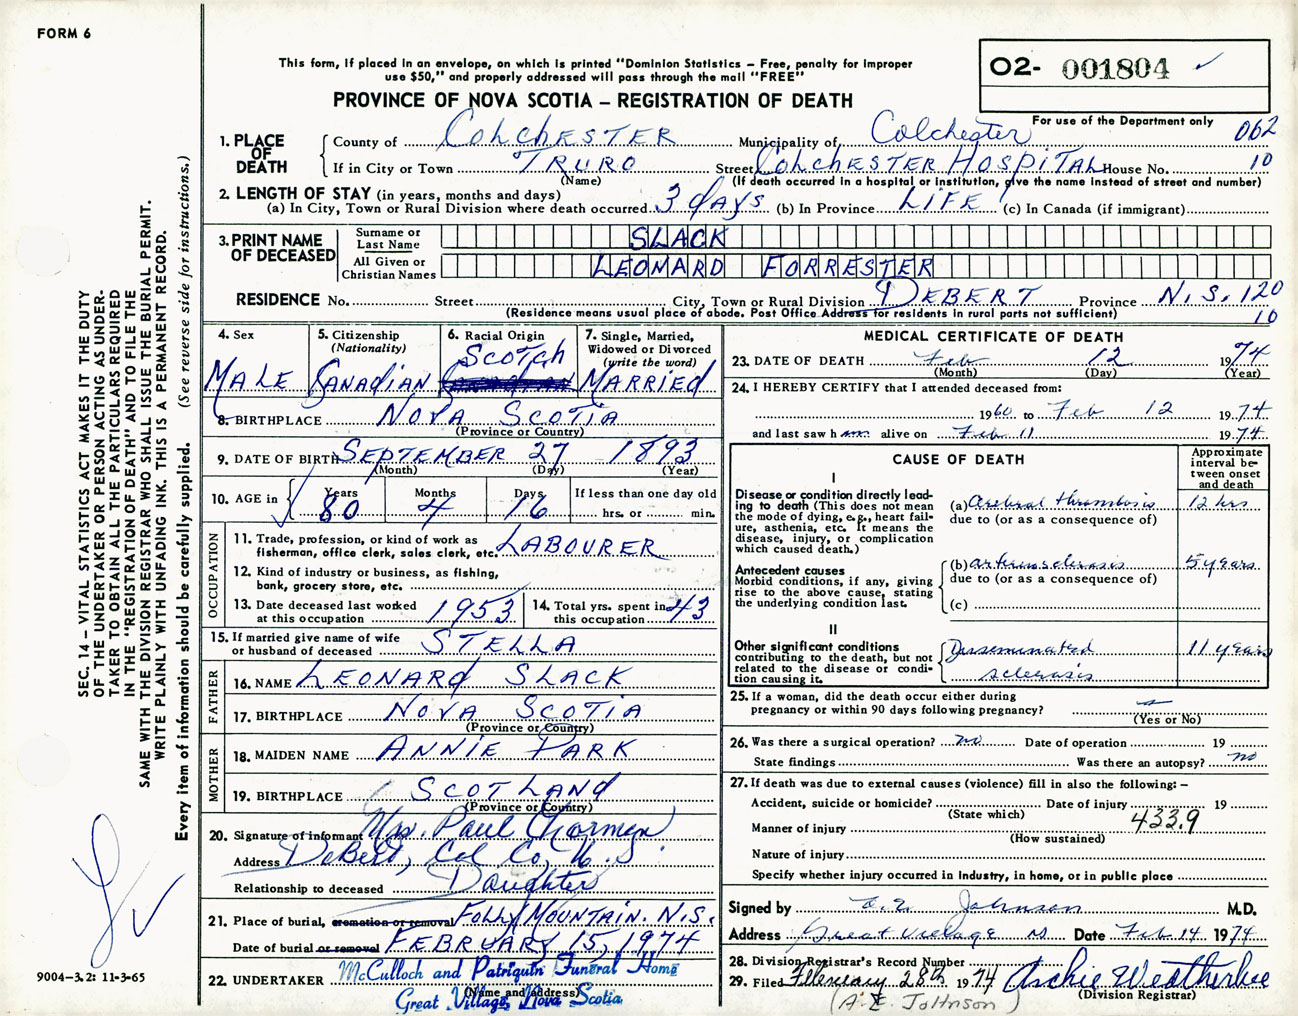 FORM 6
This form, if placed in an envelope, on which is printed "Dominion Statistics – Free, penalty for improper
use $50," and properly addressed will pass through the mail "FREE"
O2- 001804 ✓
PROVINCE OF NOVA SCOTIA – REGISTRATION OF DEATH
For use of the Department only 062
1. PLACE OF DEATH
County of COLCHESTER Municipality of Colchester
If in City or Town TRURO Street COLCHESTER HOSPITAL House No. 10
(Name) (If death occurred in a hospital or institution, give the name instead of street and number)
2. LENGTH OF STAY (in years, months and days)
(a) In City, Town or Rural Division where death occurred 3 days (b) In Province LIFE (c) In Canada (if immigrant)
3. PRINT NAME OF DECEASED
Surname or Last Name SLACK
All Given or Christian Names LEONARD FORRESTER
RESIDENCE No. Street City, Town or Rural Division DEBERT Province N.S. 120
(Residence means usual place of abode. Post Office Address for residents in rural parts not sufficient) 10
4. Sex MALE
5. Citizenship (Nationality) CANADIAN
6. Racial Origin SCOTCH
7. Single, Married, Widowed or Divorced (write the word) MARRIED
8. BIRTHPLACE NOVA SCOTIA
(Province or Country)
9. DATE OF BIRTH SEPTEMBER 27 1893
(Month) (Day) (Year)
10. AGE in Years 80 Months 4 Days 16 If less than one day old
hrs. or min.
OCCUPATION
11. Trade, profession, or kind of work as
fisherman, office clerk, sales clerk, etc. LABOURER
12. Kind of industry or business, as fishing,
bank, grocery store, etc.
13. Date deceased last worked at this occupation 1953
14. Total yrs. spent in this occupation 43
15. If married give name of wife or husband of deceased STELLA
FATHER
16. NAME LEONARD SLACK
17. BIRTHPLACE NOVA SCOTIA
(Province or Country)
MOTHER
18. MAIDEN NAME ANNIE PARK
19. BIRTHPLACE SCOTLAND
(Province or Country)
20. Signature of informant Mrs. Paul Charman
Address DeBert, Col Co, N.S.
Relationship to deceased Daughter
21. Place of burial, cremation or removal FOLLY MOUNTAIN. N.S.
Date of burial or removal FEBRUARY 15, 1974
22. UNDERTAKER McCulloch and Patriquin Funeral Home
(Name and address)
Great Village, Nova Scotia
MEDICAL CERTIFICATE OF DEATH
23. DATE OF DEATH Feb 12 1974
(Month) (Day) (Year)
24. I HEREBY CERTIFY that I attended deceased from:
1960 to Feb 12 1974
and last saw h im alive on Feb 11 1974
CAUSE OF DEATH
Approximate interval between onset and death
I
Disease or condition directly leading to death (This does not mean
the mode of dying, e.g., heart failure, asthenia, etc. It means the
disease, injury, or complication
which caused death.)
(a) Cerebral thrombosis 12 hrs
due to (or as a consequence of)
Antecedent causes
Morbid conditions, if any, giving
rise to the above cause, stating
the underlying condition last.
(b) arteriosclerosis 5 years
due to (or as a consequence of)
(c)
II
Other significant conditions
contributing to the death, but not
related to the disease or condition causing it.
Disseminated sclerosis 11 years
25. If a woman, did the death occur either during
pregnancy or within 90 days following pregnancy?
(Yes or No)
26. Was there a surgical operation? no Date of operation 19
State findings Was there an autopsy? no
27. If death was due to external causes (violence) fill in also the following:–
Accident, suicide or homicide? Date of injury 19
(State which) 433.9
Manner of injury
(How sustained)
Nature of injury
Specify whether injury occurred in industry, in home, or in public place
Signed by Johnson M.D.
Address Great Village NS Date Feb 14 1974
28. Division Registrar's Record Number
29. Filed February 28th 1974 Archie Weatherbee
(Division Registrar)
(A. E. Johnson)
SEC. 14 – VITAL STATISTICS ACT MAKES IT THE DUTY
OF THE UNDERTAKER OR PERSON ACTING AS UNDER-
TAKER TO OBTAIN ALL THE PARTICULARS REQUIRED
IN THE "REGISTRATION OF DEATH" AND TO FILE THE
SAME WITH THE DIVISION REGISTRAR WHO SHALL ISSUE THE BURIAL PERMIT.
WRITE PLAINLY WITH UNFADING INK. THIS IS A PERMANENT RECORD.
Every item of information should be carefully supplied. (See reverse side for instructions.)
9004–3.2: 11-3-65